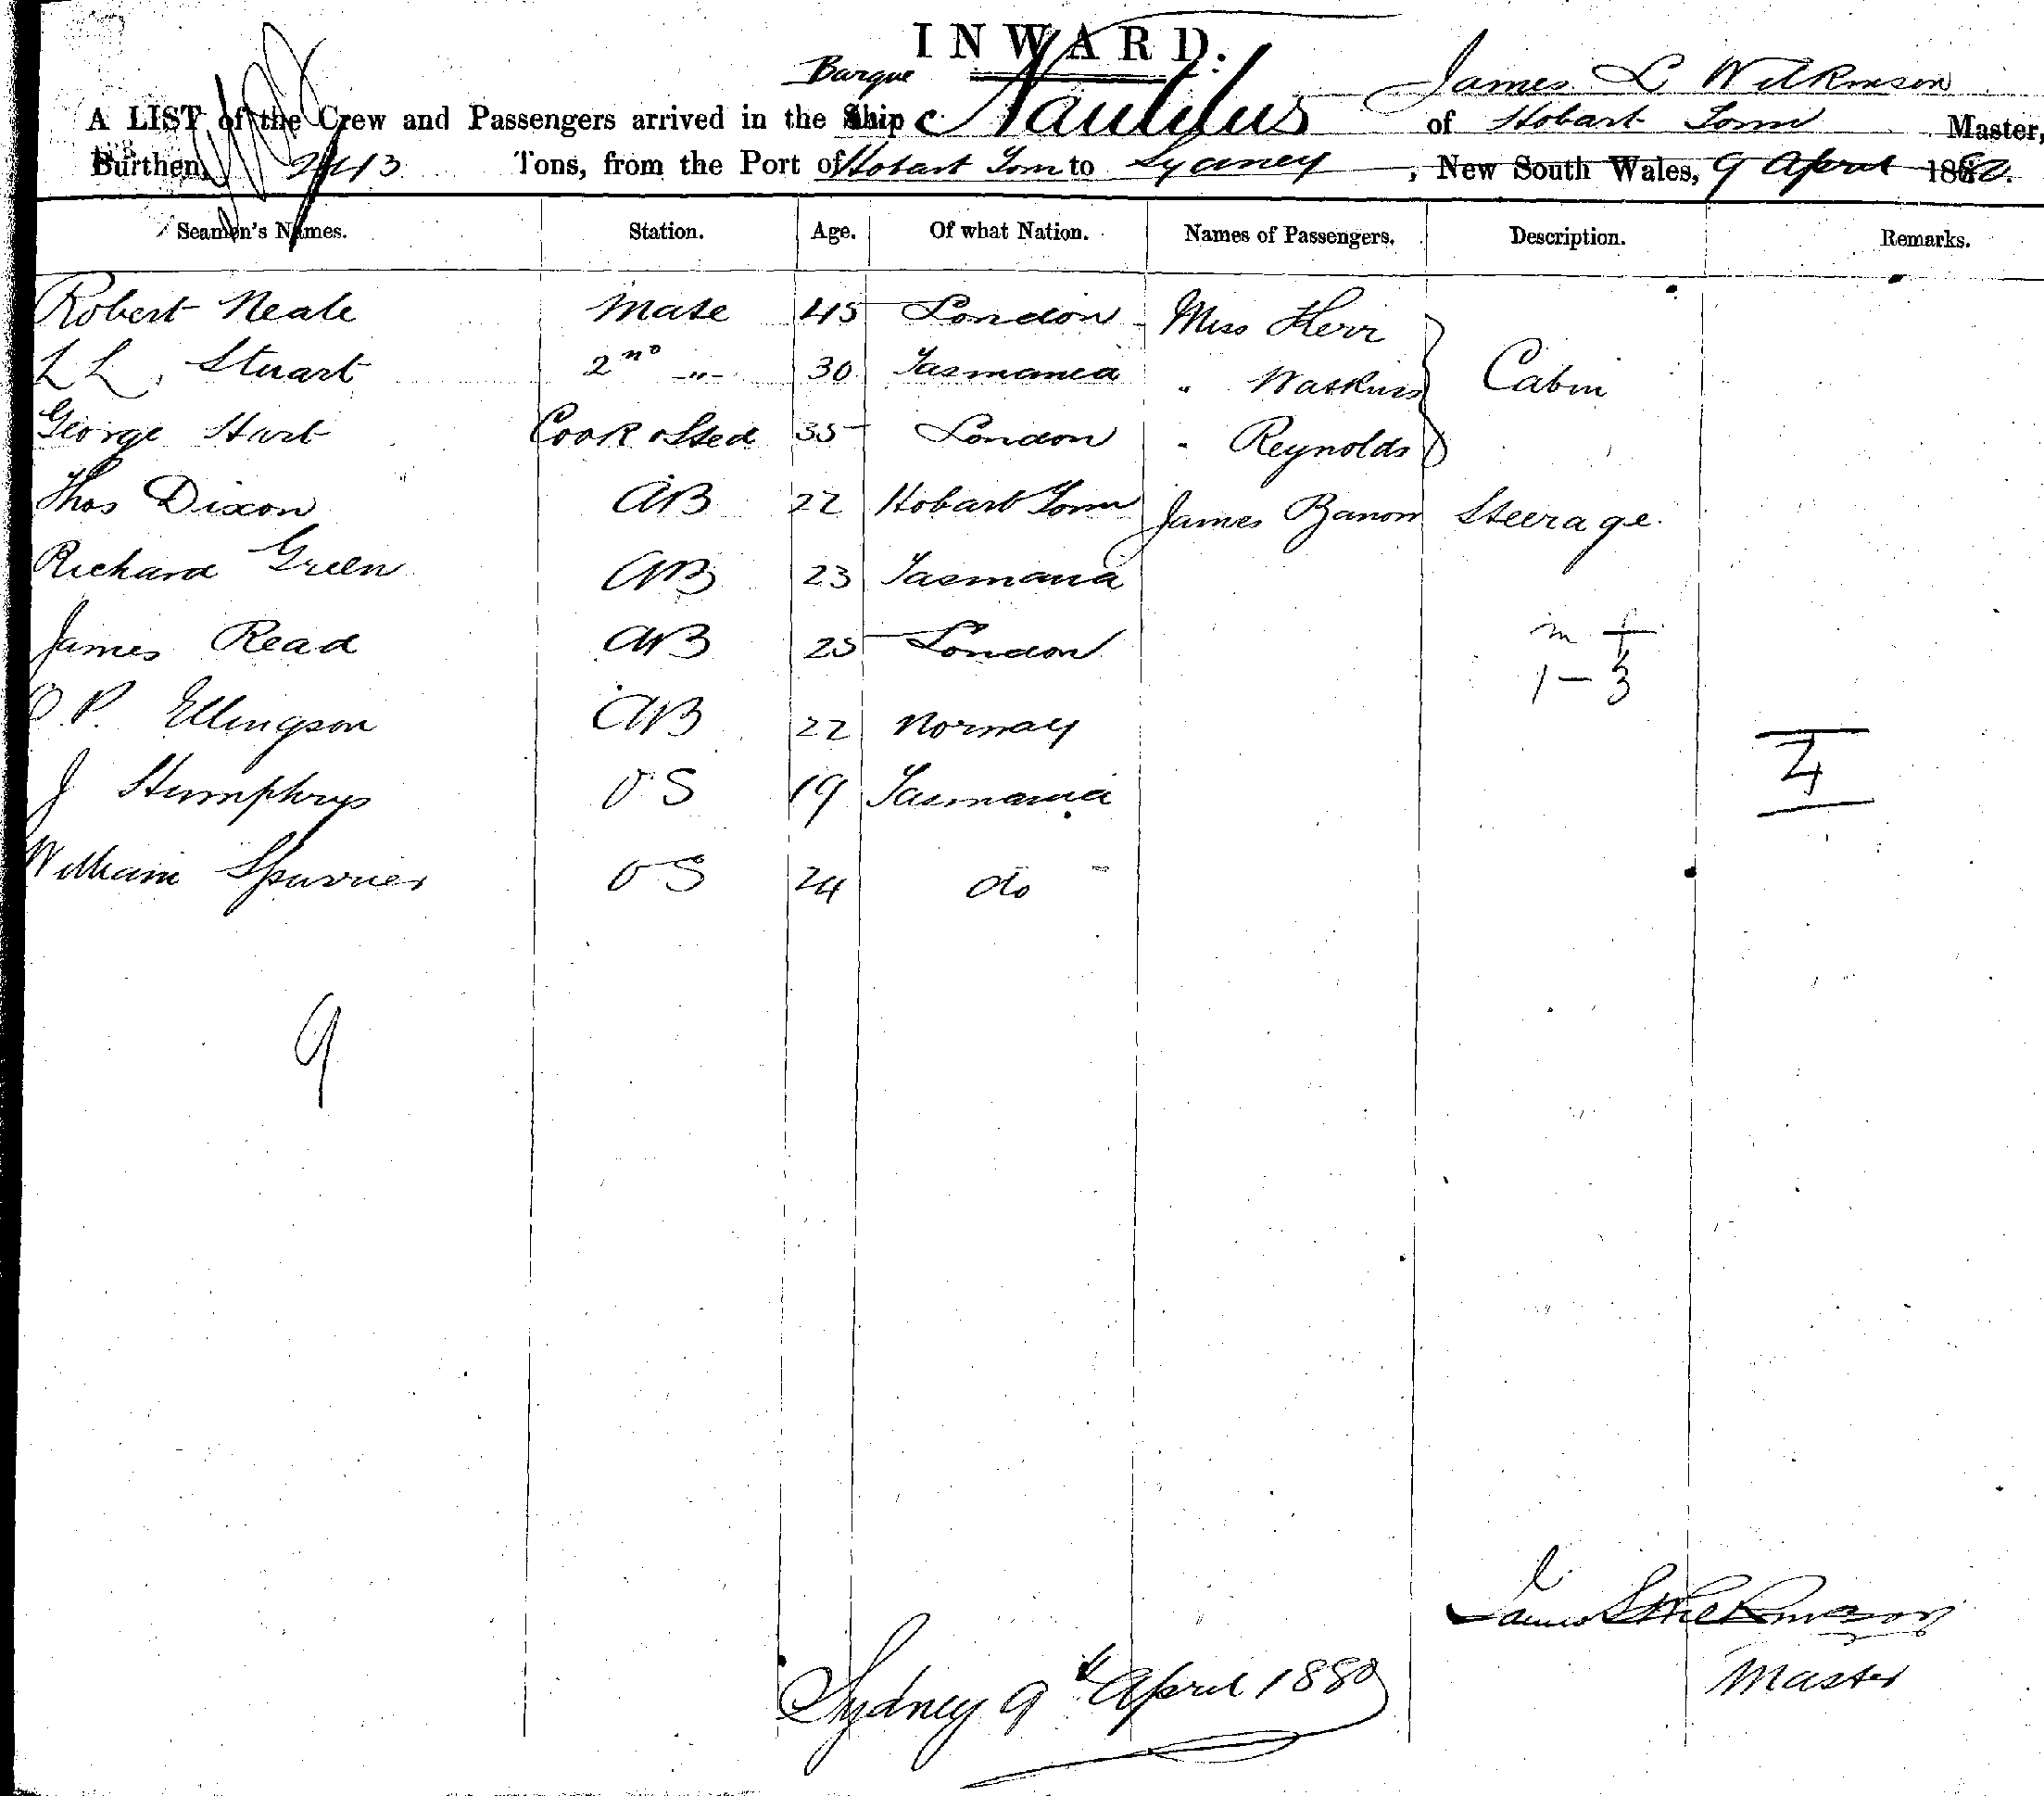 INWARD.
Barque James L Wilkinson
A LIST of the Crew and Passengers arrived in the Ship Nautilus of Hobart Town Master,
Burthen, Tons, from the Port of Hobart Town to Sydney, New South Wales, 9 April 1880.
Seamen's Names. Station. Age. Of what Nation. Names of Passengers. Description. Remarks.
Robert Neale Mate 45 London Miss Kerr
L L, Stuart 2nd -"- 30 Tasmania " Watkins Cabin
George Hart Cook & Sted 35 London " Reynolds
Thos Dixon AB 22 Hobart Town James Banon Steerage.
Richard Green AB 23 Tasmania
James Read AB 25 London
m f
1 - 3
O. P. Ellingson AB 22 Norway
4
J Humphrys OS 19 Tasmania
William Spurrier OS 24 do
9
James L Wilkinson
Master
Sydney 9th April 1880